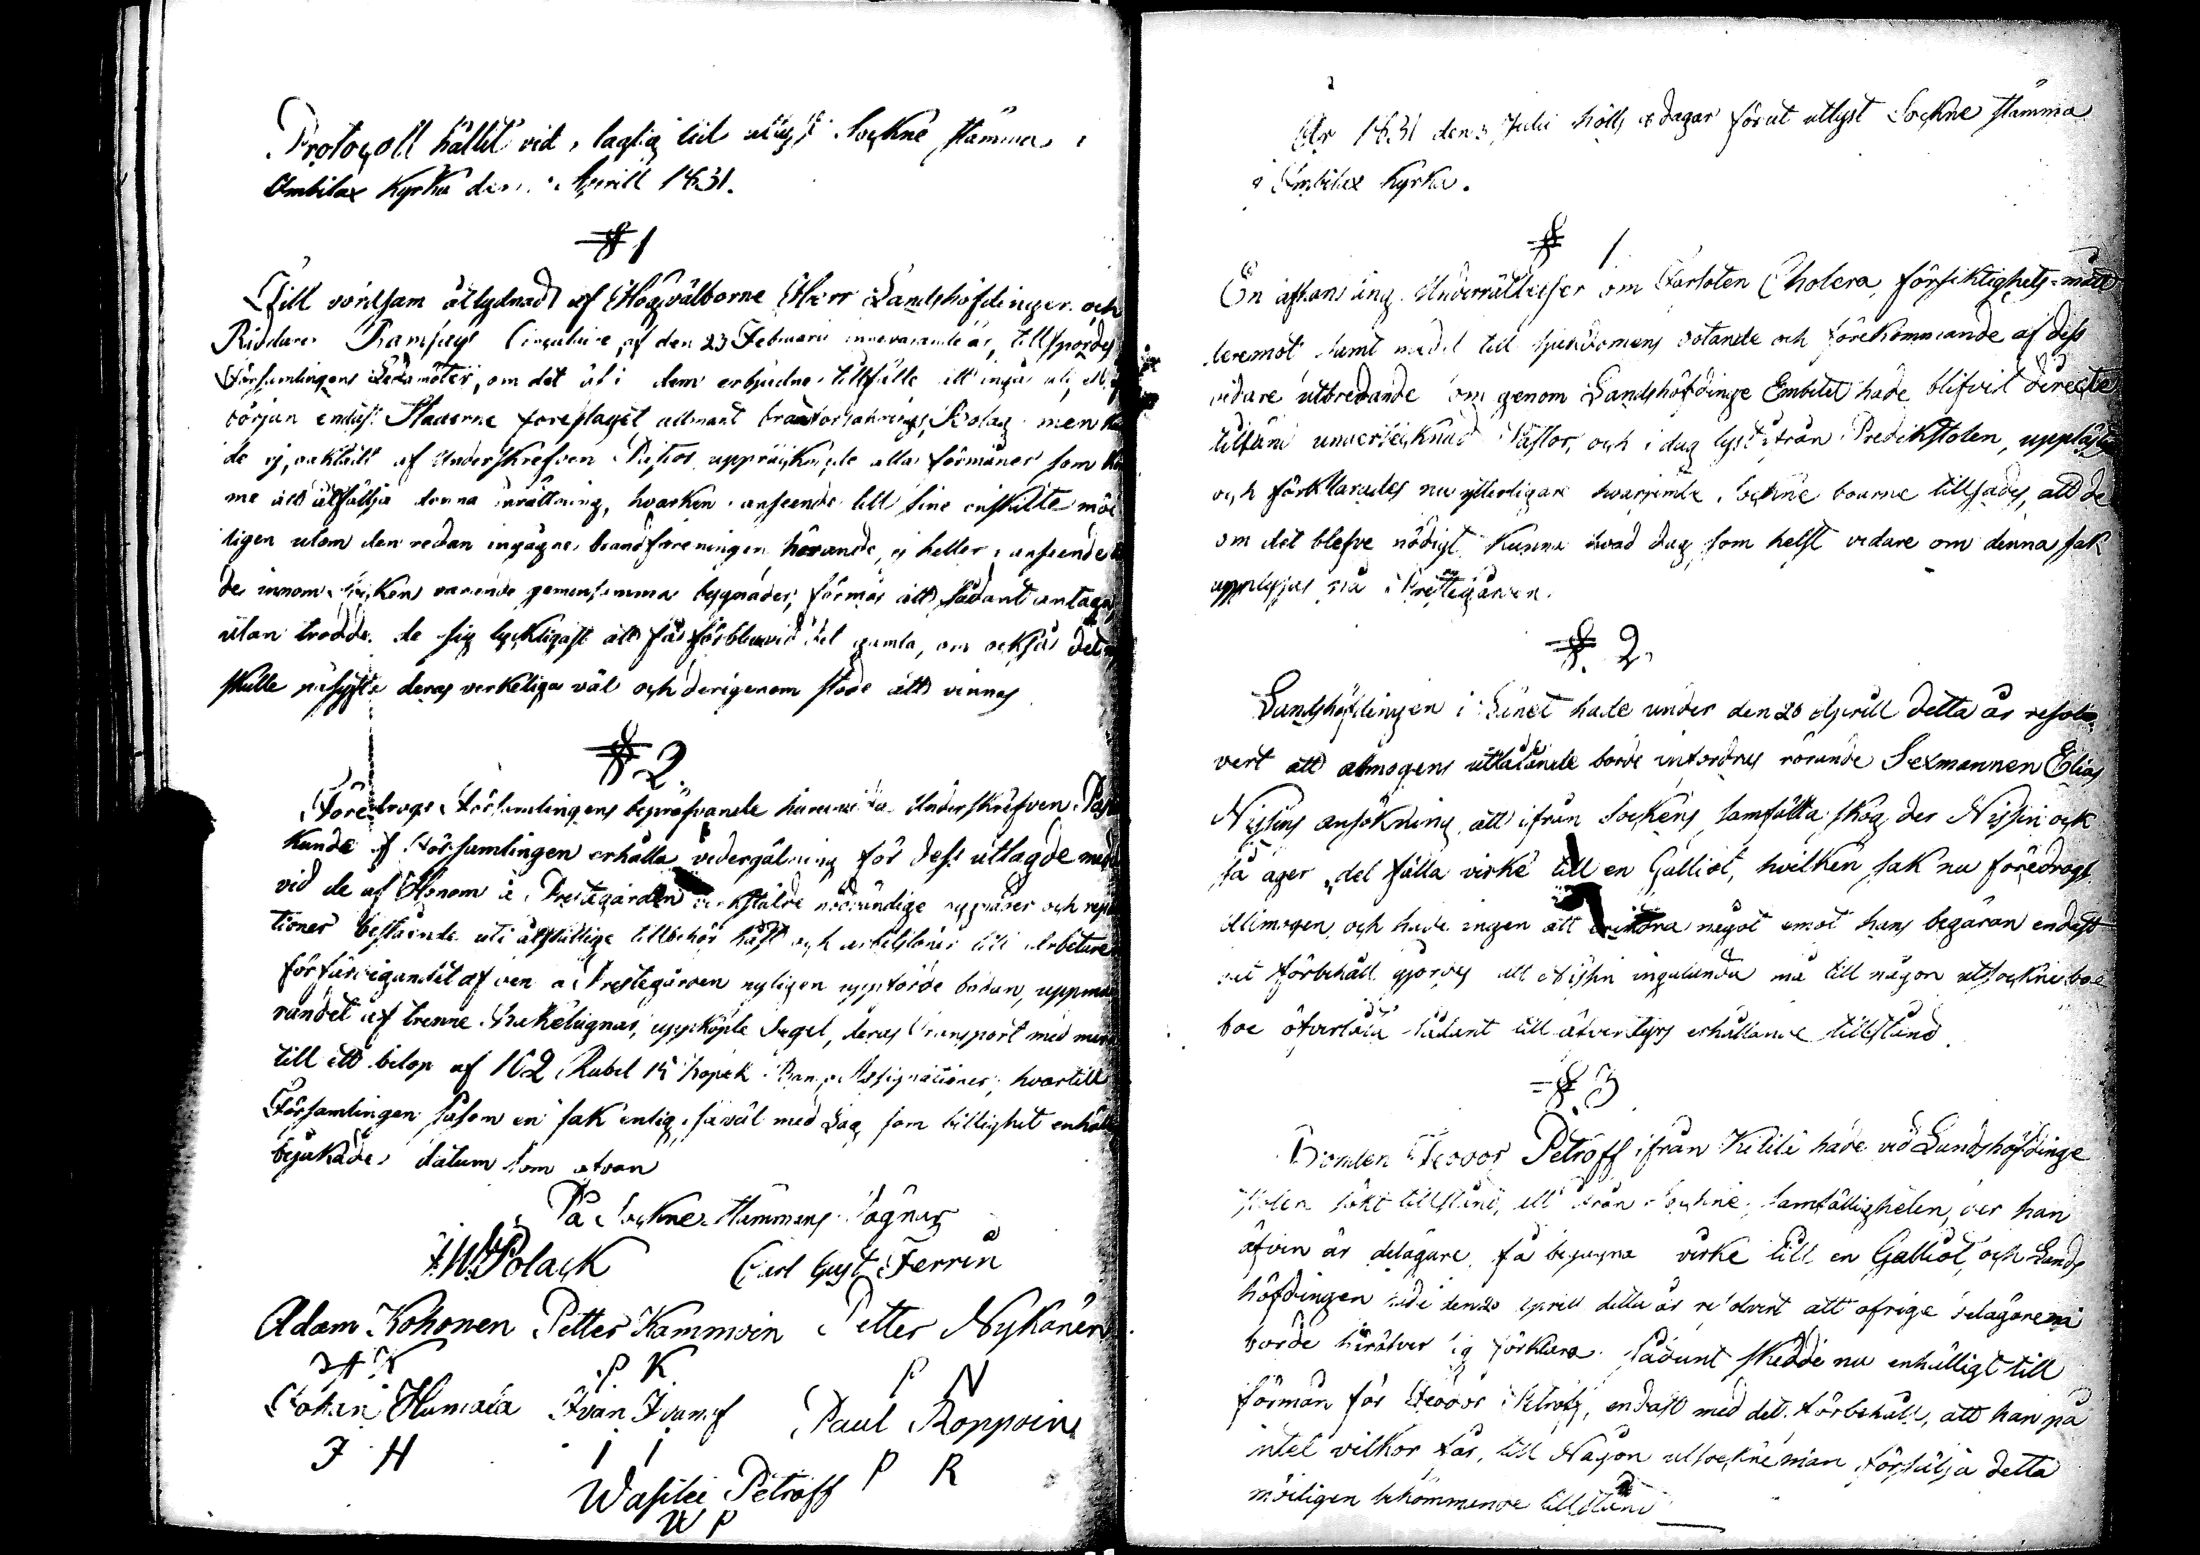 Protocoll hållit vid laglig tid utlyst Sockne stämma i
Ombilax Kyrka den Aprill 1831.
§ 1
Till vördsam åtlydnad af Högvälborne Herr Landshöfdingen och
Riddaren Ramsays Circulaire af den 23 Februarii innevarande år, tillspordes
Församlingens Ledamöter, om det åt dem erbjudne tillfälle att ingå uti
början endast Städerne föreslaget allmänt brandförsäkrings Bolag men
de ej, oaktadt af Underskrefven Pastor uppräknade alla förmåner som
me att åtfölja denna inrättning, hvarken i anseende till sine enskilte
ligen utom den redan ingågne brandföreningen hörande, ej heller i anseende
de innom Socken varande gemensamma bygnader, förmås att sådant antaga,
utan trodde de sig lyckligast att få förblifva vid det gamla, om också det
skulle påsyfta deras verkeliga väl och derigenom stode att vinnas
§ 2.
Föredrogs Församlingens bepröfvande huruvida Underskrefven
kunde af Församlingen erhålla vedergälning för dess utlagde
vid de af Honom å Prestegården verkstälde nödvändige bygnader och
tioner bestående uti åtskillige tillbehör och arbetslöner till
färdigandet af den å Prestegården nyligen uppförde bodan,
randet af trenne Kakelugnar, uppköpte Tegel, deras Transport med
till ett belop af 162 Rubel 15 kopek i Banco Assignationer; hvartill
Församlingen såsom en sak enlig såväl med Lag som billighet
bejakade datum som ofvan
På Sockne Stämmans Vägnar
Polack Carl Gust. Ferrin
Adam Kohonen Petter Kammoin Petter Nykänen
A K P K P N
Johan Humala Ivan Ivanof Paul Roppoin
J H I I P R
Wasilei Petroff
W P
År 1831 den 3 Julii hölls dagar förut utlyst Sockne stämma
i Ombilax Kyrka.
§ 1
En afhandling Underrättelser om Farsoten Cholera, försiktighets-mått
deremot samt medel till sjukdomens botande och förekommande af dess
vidare utbredande som genom Landshöfdinge Embetet hade blifvit directe
tillsänd undertecknad Pastor, och i dag lyst från Predikstolen, upplästes
och förklarades nu ytterligare hvarjemte Sockne boerne tillsades, att de
om det blefve nödigt kunna hvad dag som helst vidare om denna sak
upplysas på Prestegården.
§ 2.
Landshöfdingen i Länet hade under den 20 Aprill detta år resol-
vert att allmogens utlåtande borde infordras rörande Sexmannen Elias
Nissins ansökning att ifrån Sockens samfälta skog der Nissin ock
så äger del fälla virke till en Galliot, hvilken sak nu föredrogs
Allmogen och hade ingen att erindra något emot hans begäran endast
det förbehåll gjordes att Nissin ingalunda må till någon utsockne boe
boe öfverlåta sådant till äfventyrs erhållande tillstånd.
§ 3
Bonden Feodor Petroff ifrån Kitilä hade vid Landshöfdinge
sökt tillstånd, att från Sockne samfälligheten, der han
äfven är delägare få begagna virke till en Galliot, och Lands
höfdingen hade den 20 Aprill detta år resolvert att öfrige delägarena
borde häröfver sig förklara. Sådant skedde nu enhälligt till
förmån för Feodor Petroff, endast med det förbehåll, att han på
intet vilkor får, till Någon utsockneman försälja detta
möiligen bekommande tillstånd